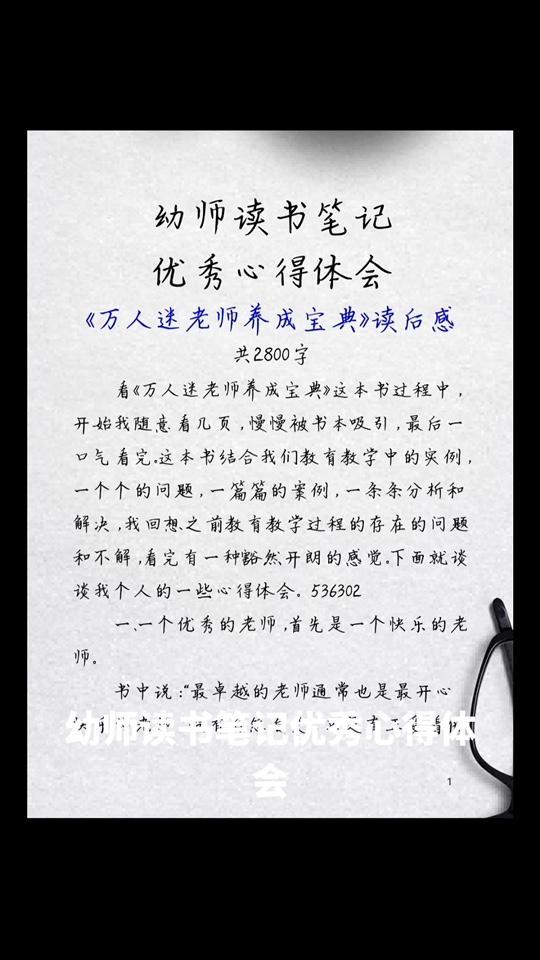 幼师读书笔记
优秀心得体会
《万人迷老师养成宝典》读后感
共2800字
看《万人迷老师养成宝典》这本书过程中,
开始我随意看几页,慢慢被书本吸引,最后一
口气看完。这本书结合我们教育教学中的实例,
一个个的问题,一篇篇的案例,一条条分析和
解决,我回想之前教育教学过程的存在的问题
和不解,看完有一种豁然开朗的感觉。下面就谈
谈我个人的一些心得体会。536302
一、一个优秀的老师,首先是一个快乐的老
师。
书中说:“最卓越的老师通常也是最开心
幼师读书笔记优秀心得体
会
1